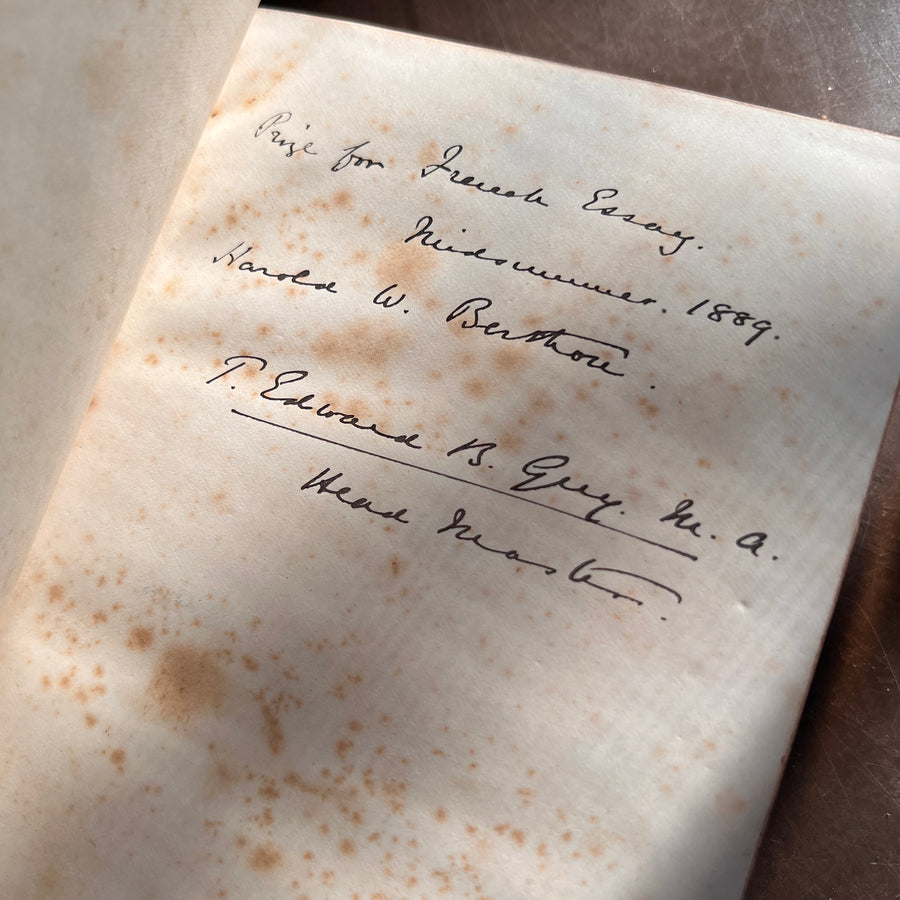 Prize for French Essay.
Midsummer. 1889.
Harold W.
T. Edward B. Guy. M. A.
Head Master.